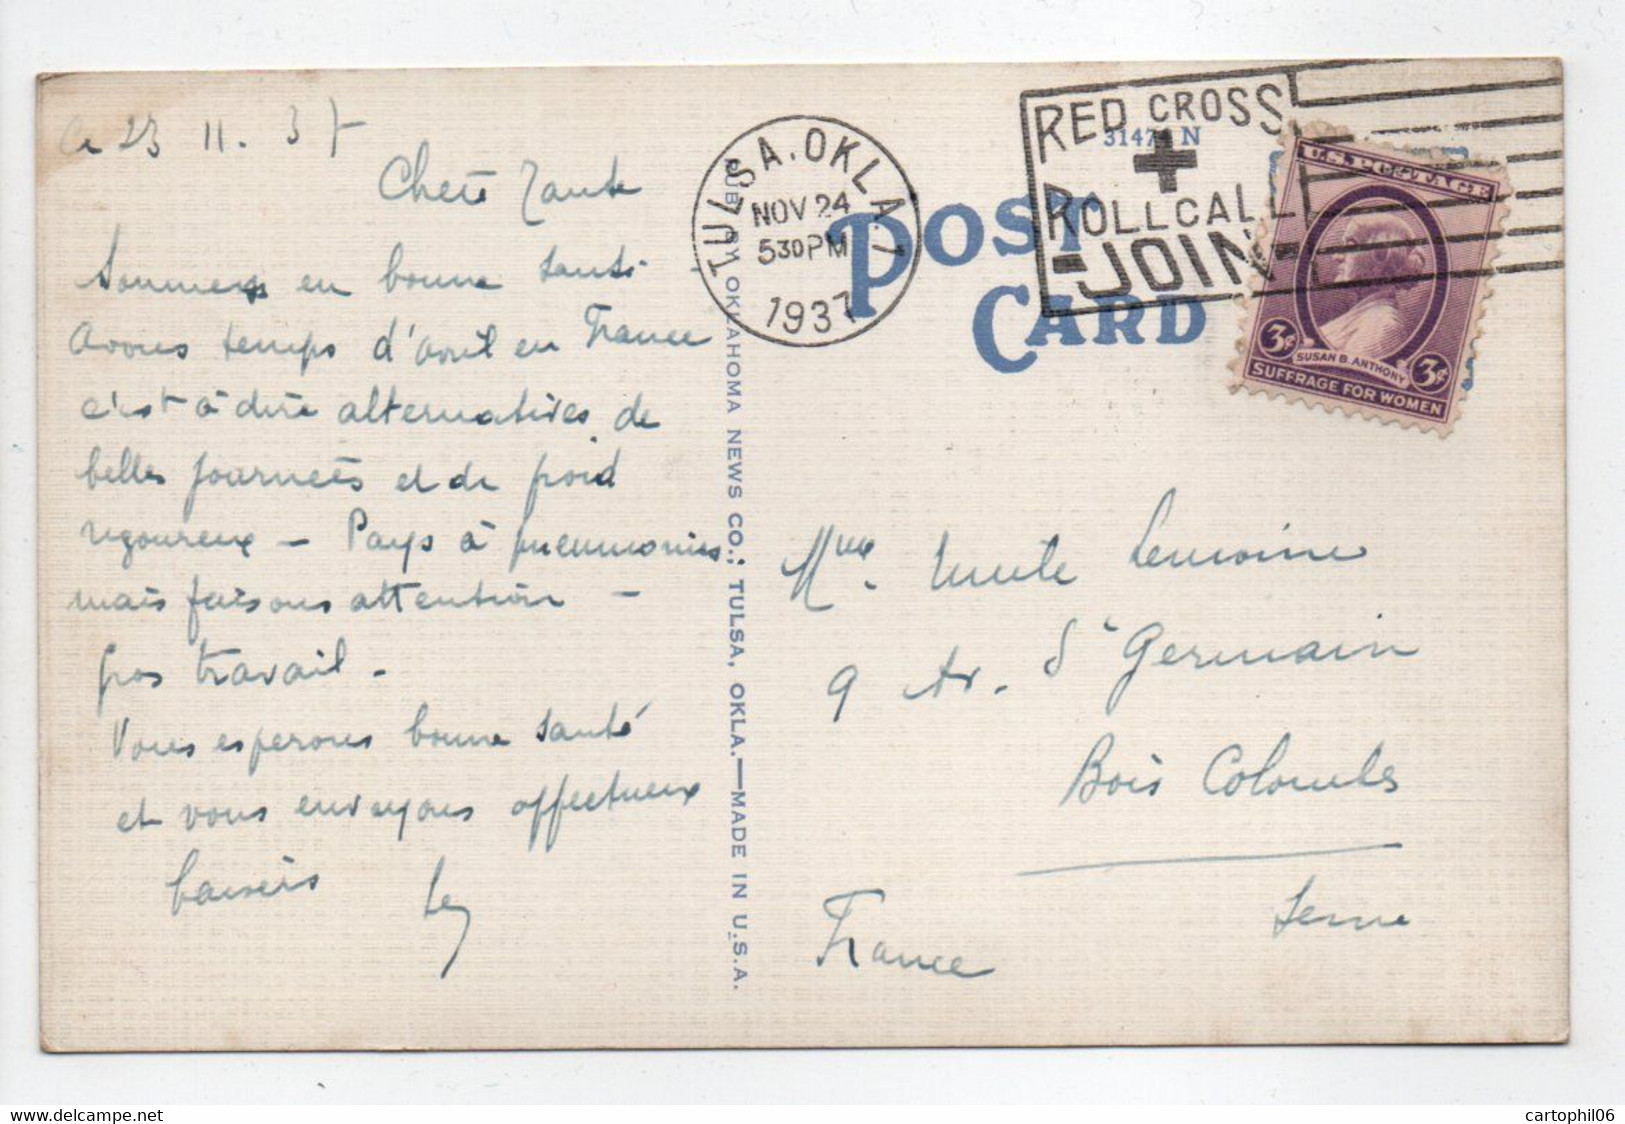 Ce 23 11. 37
Chère Tante
Sommes en bonne santé.
Avons temps d'avril en France
c'est à dire alternatives de
belles journées et de froid
rigoureux - Pays à pneumonies
mais faisons attention -
gros travail -
Vous espérons bonne santé
et vous envoyons affectueux
baisers
PUB. BY OKLAHOMA NEWS CO., TULSA, OKLA.—MADE IN U.S.A.
TULSA, OKLA. 1
NOV 24
530 PM
1937
RED CROSS
ROLL CALL
-JOIN-
3147 N
POST
CARD
U.S. POSTAGE
3¢ 3¢
SUSAN B. ANTHONY
SUFFRAGE FOR WOMEN
Mme. Lemoine
9 Av. St Germain
Bois Colombes
Seine
France
delcampe.net
cartophil06